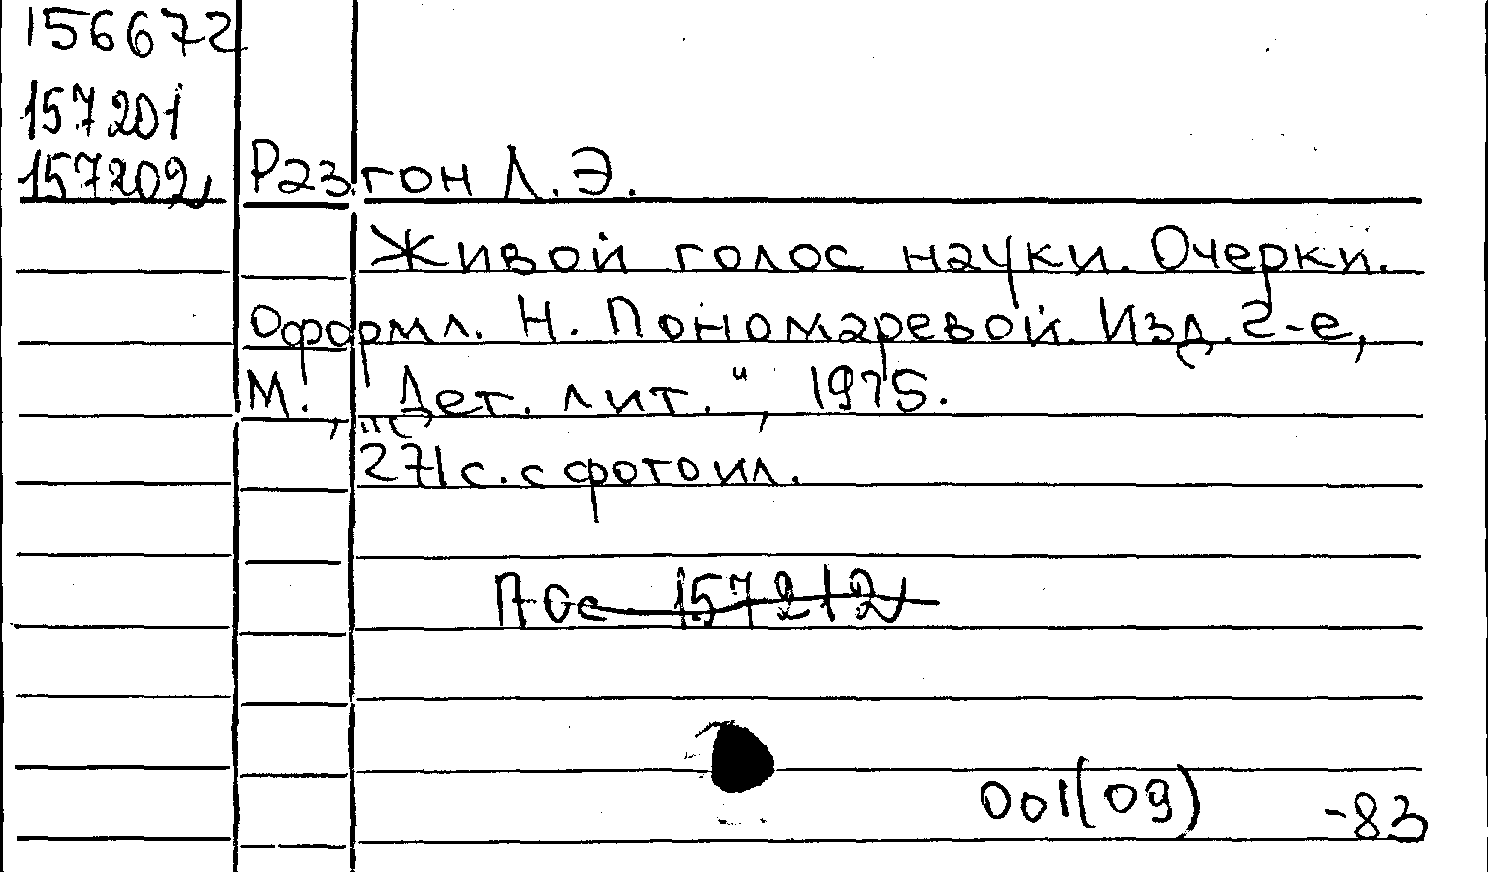 156672
157201
157202
Разгон Л. Э.
Живой голос науки. Очерки.
Оформл. Н. Пономаревой. Изд. 2-е,
М., „Дет. лит.“, 1975.
271 с. с фотоил.
157212
001(09) -83